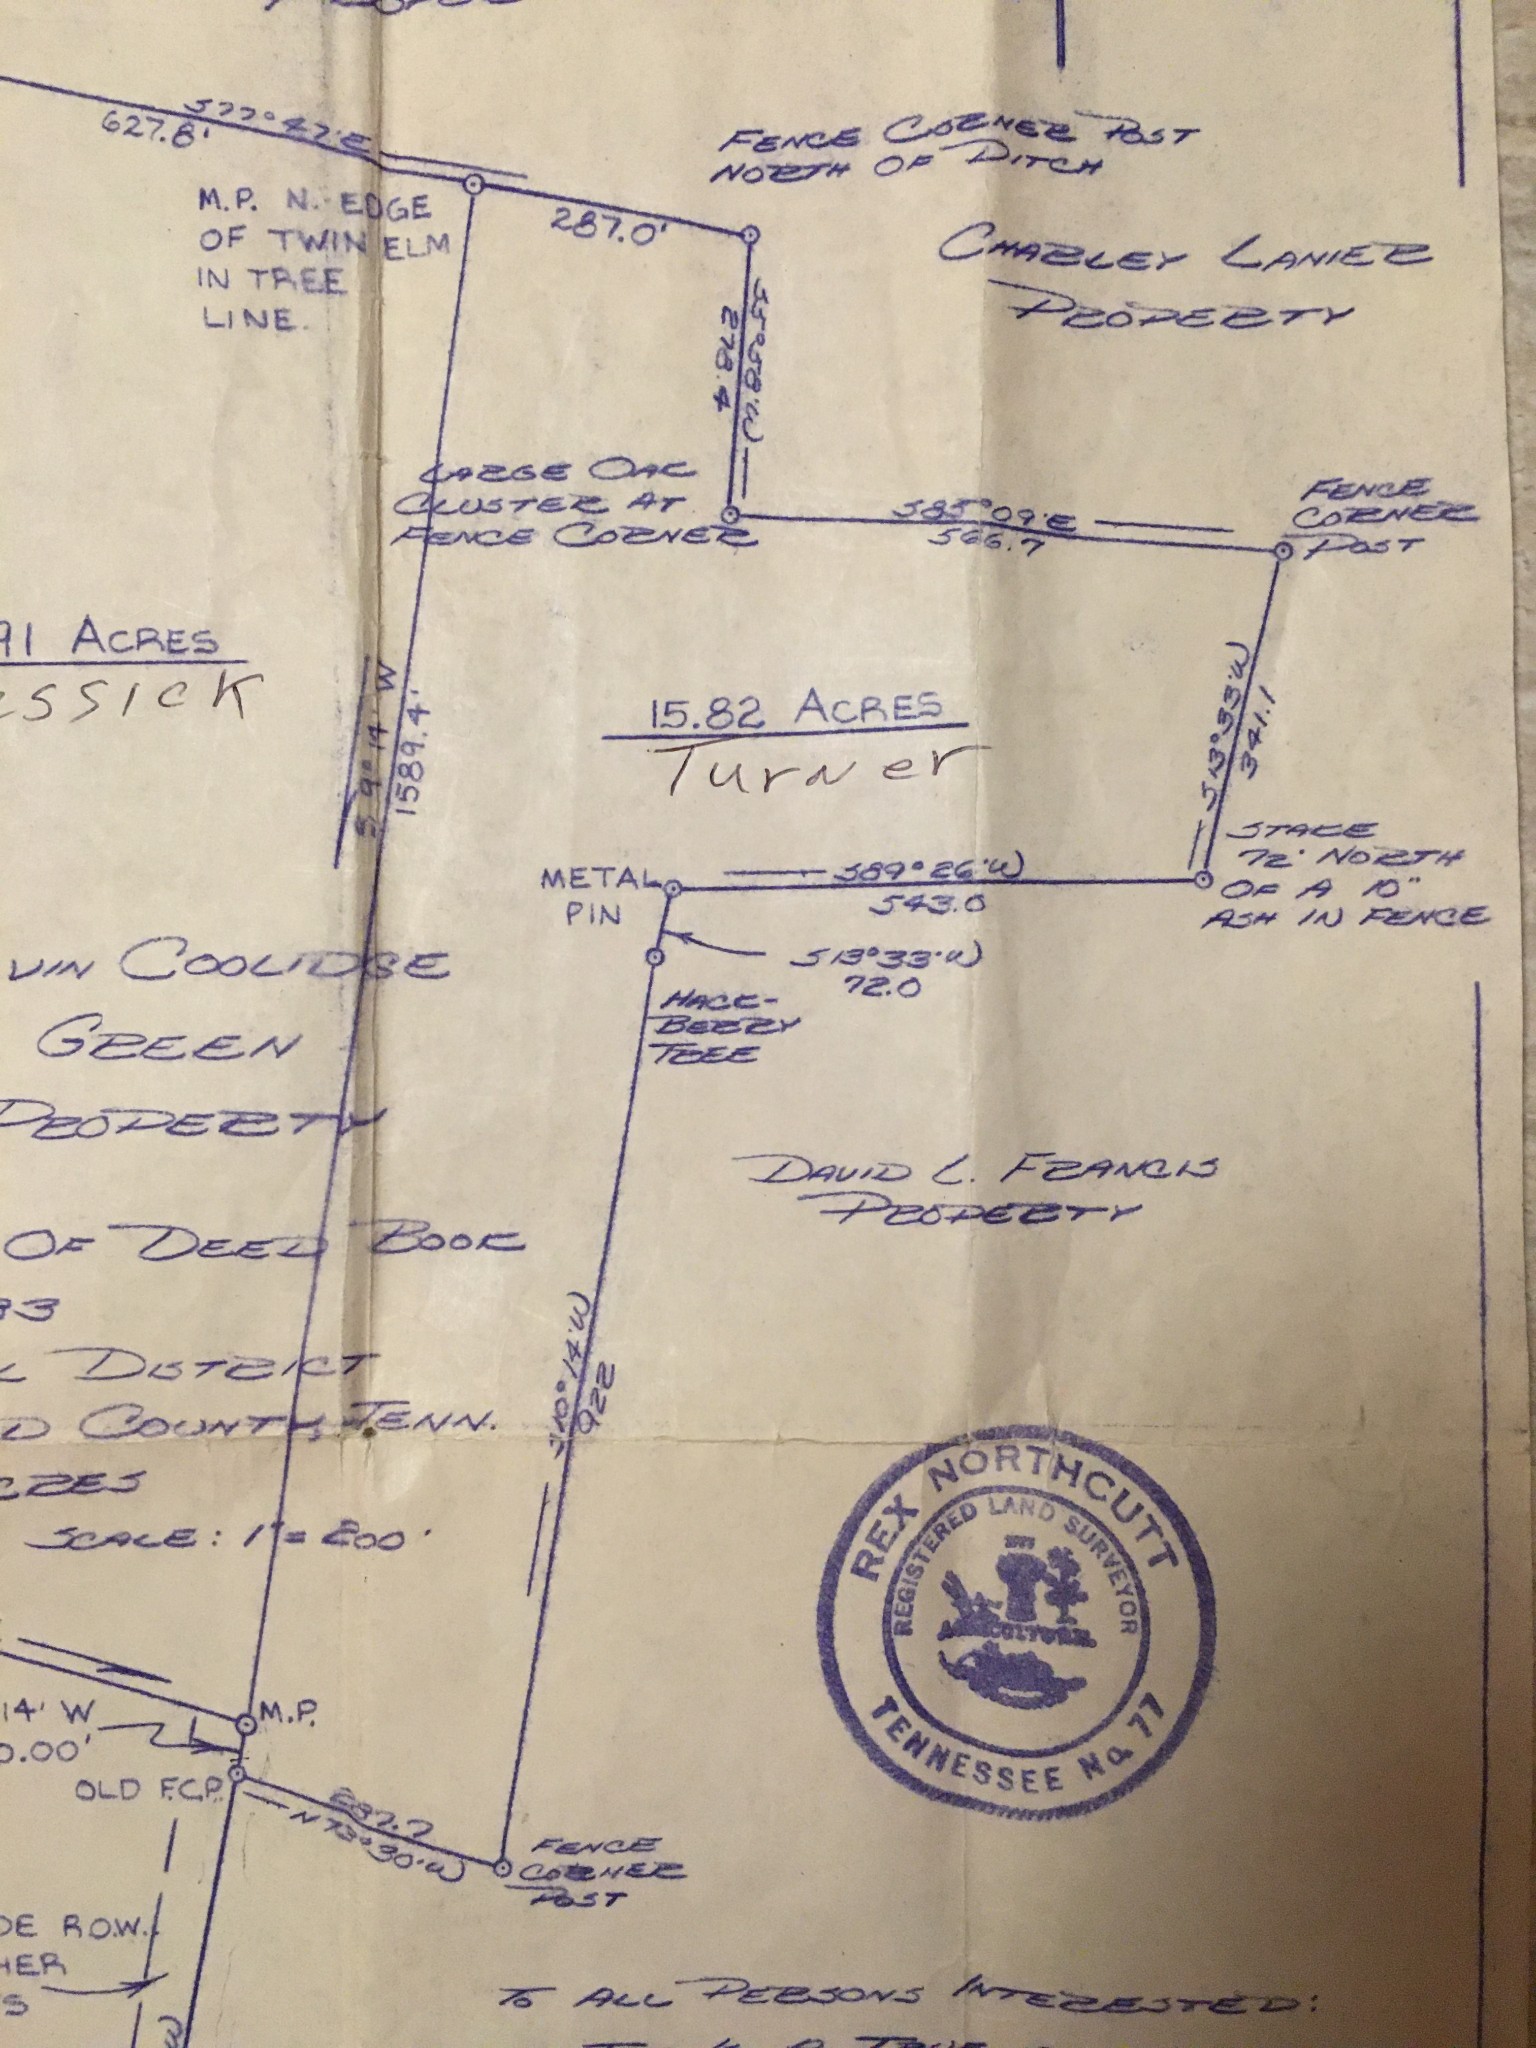 S77°47'E
627.8'
M.P. N. EDGE
OF TWIN ELM
IN TREE
LINE.
287.0'
FENCE CORNER POST
NORTH OF DITCH
CHARLEY LANIER
PROPERTY
S5°58'W
278.4
LARGE OAK
CLUSTER AT
FENCE CORNER
S85°09'E
566.7
FENCE
CORNER
POST
91 ACRES
ESSICK
S 9° 14' W
1589.4'
15.82 ACRES
Turner
S13°33'W
341.1
STAKE
72' NORTH
OF A 10"
ASH IN FENCE
METAL
PIN
S89°26'W
543.0
S13°33'W
72.0
HACK-
BERRY
TREE
VIN COOLIDGE
GREEN
PROPERTY
DAVID L. FRANCIS
PROPERTY
OF DEED BOOK
33
L DISTRICT
D COUNTY, TENN.
CRES
SCALE: 1"= 200'
S10°14'W
922
REX NORTHCUTT
REGISTERED LAND SURVEYOR
AGRICULTURE
TENNESSEE No. 77
14' W
0.00'
M.P.
OLD F.C.P.
287.7
N73°30'W
FENCE
CORNER
POST
DE R.O.W.
HER
S
W
TO ALL PERSONS INTERESTED: